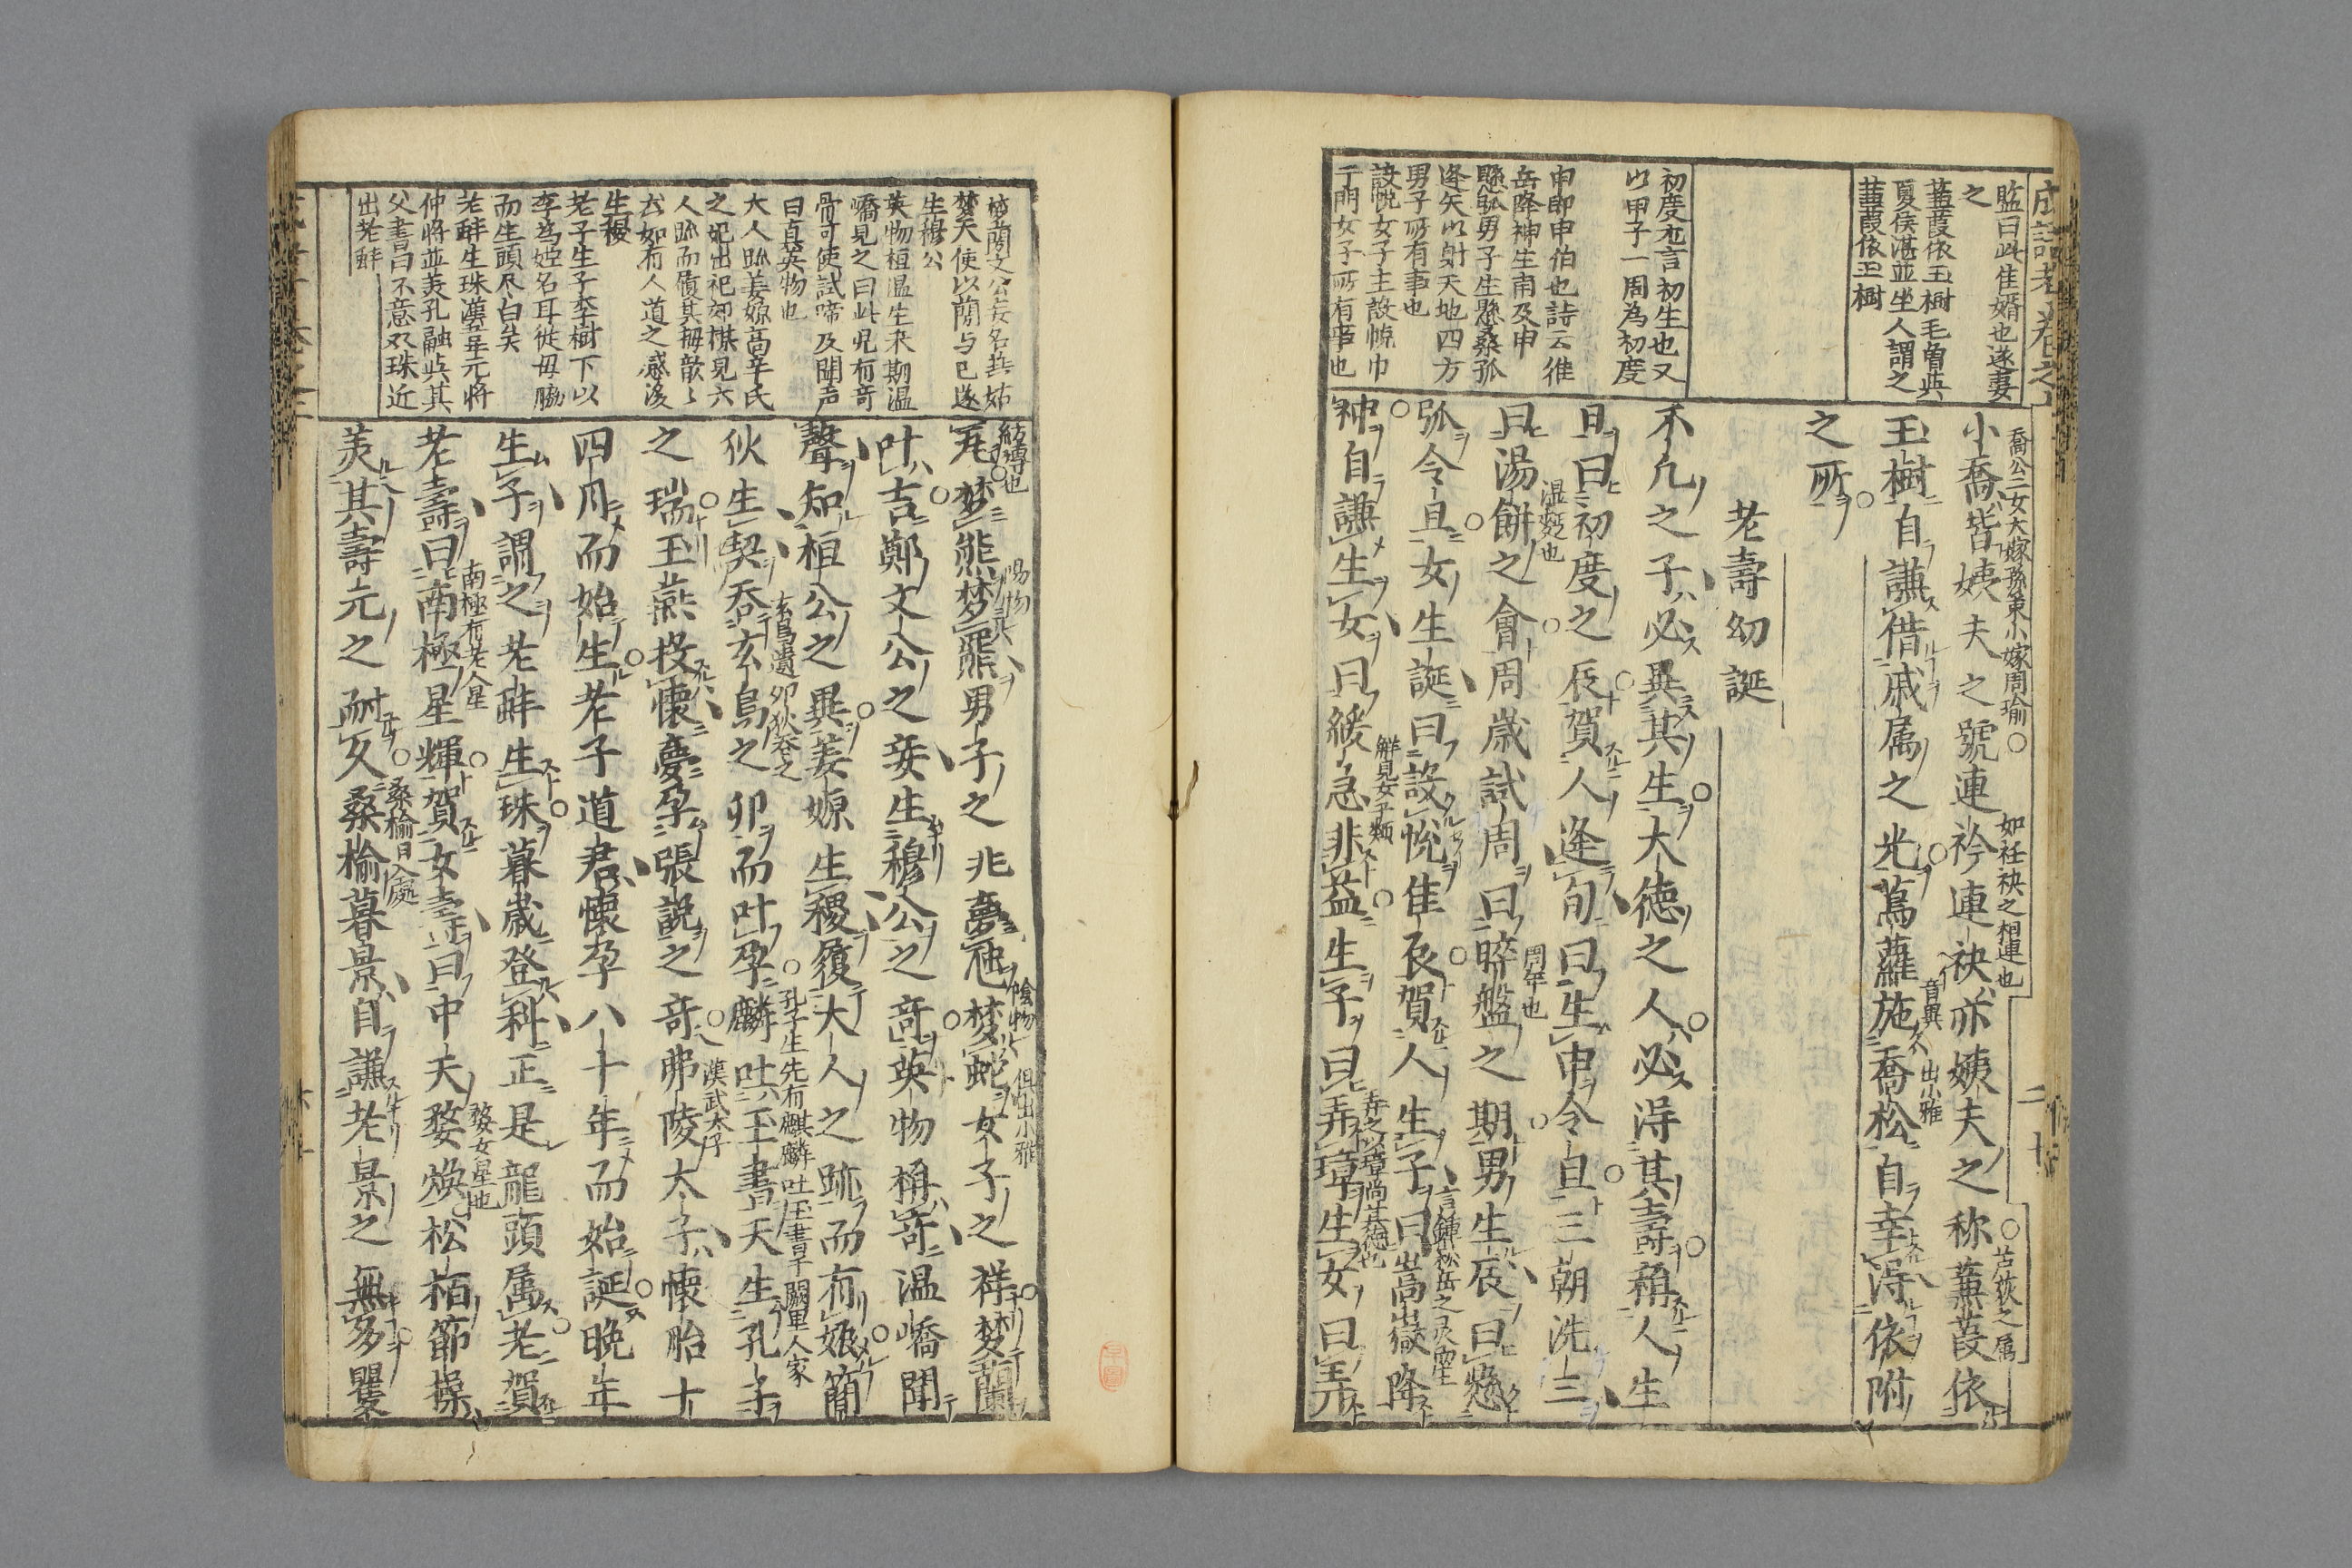 監曰此佳婿也遂妻
之
蒹葭依玉樹毛曾與
夏侯湛並坐人謂之
蒹葭依玉樹
初度尤言初生也又
以甲子一周為初度
申即申伯也詩云維
岳降神生甫及申
懸弧男子生懸桑弧
逢矢以射天地四方
男子所有事也
設帨女子主設帨巾
于門女子所有事也
喬公二女大嫁孫策小嫁周瑜
如衽袂之相連也
苫荻之属
小喬皆姨夫之號連衿連袂亦姨夫之称蒹葭依
音異
出小雅
玉樹自謙借戚属之光蔦蘿施喬松自幸得依附
之所
老壽幼誕
不凢之子必異其生大徳之人必淂其壽稱人生
日曰初度之辰賀人逢旬曰生申令旦三朝洗三
温麪也
周年也
曰湯餅之會周歳試周曰晬盤之期男生辰曰懸
弧令旦女生誕曰設帨佳辰賀人生子曰嵩嶽降
解見女子類
弄之以璋尚其徳也
神自謙生女曰緩急非益生子曰弄璋生女曰弄
夢蘭文公妾名燕姑
夢天使以蘭与已遂
生穆公
英物桓温生未期温
嶠見之曰此児有竒
骨可使試啼及聞声
曰真英物也
大人跡姜嫄高辛氏
之妃出祀郊禖見大
人跡而履其拇歆〻
然如有人道之感後
生稷
老子生于李樹下以
李為姓名耳従母脇
而生頭尽白矣
老蚌生珠漢韋元将
仲将並美孔融与其
父書曰不意双珠近
出老蚌
紡塼也
陽物
陰物
俱出小雅
瓦梦熊梦羆男子之兆夢虺梦蛇女子之祥梦蘭
叶吉鄭文公之妾生穆公之竒英物稱竒温嶠聞
聲知桓公之異姜嫄生稷履大人之跡而有娠簡
玄鳥遺卵狄吞之
孔子生先有麒麟吐玉書于闕里人家
狄生契吞玄鳥之卯而叶孕麟吐玉書天生孔子
漢武太子
之瑞玉燕投懷夢孕張說之竒弗陵太子懐胎十
四月而始生老子道君懷孕八十年而始誕晩年
生子謂之老蚌生珠暮歳登科正是龍頭属老賀
南極有老人星
婺女星也
老壽曰南極星輝賀女壽曰中天婺煥松栢節操
桑榆日入處
美其壽元之耐久桑榆暮景自謙老景之無多矍